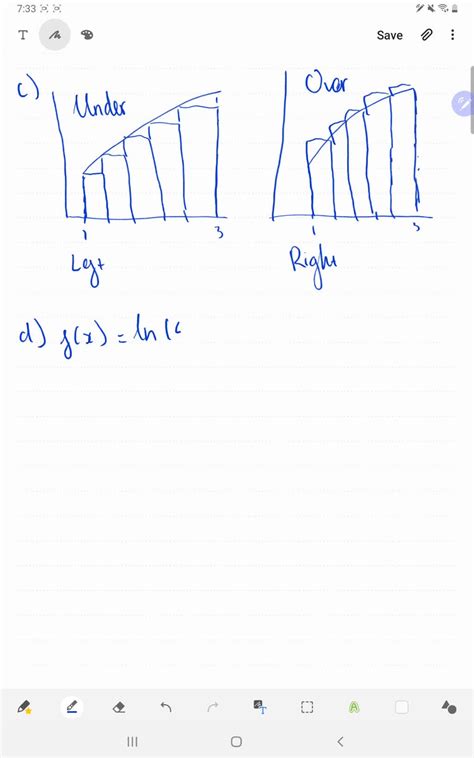 7:33
T Save
c) Under Over
1 3 1 3
Left Right
d) f(x) = ln(
T
A